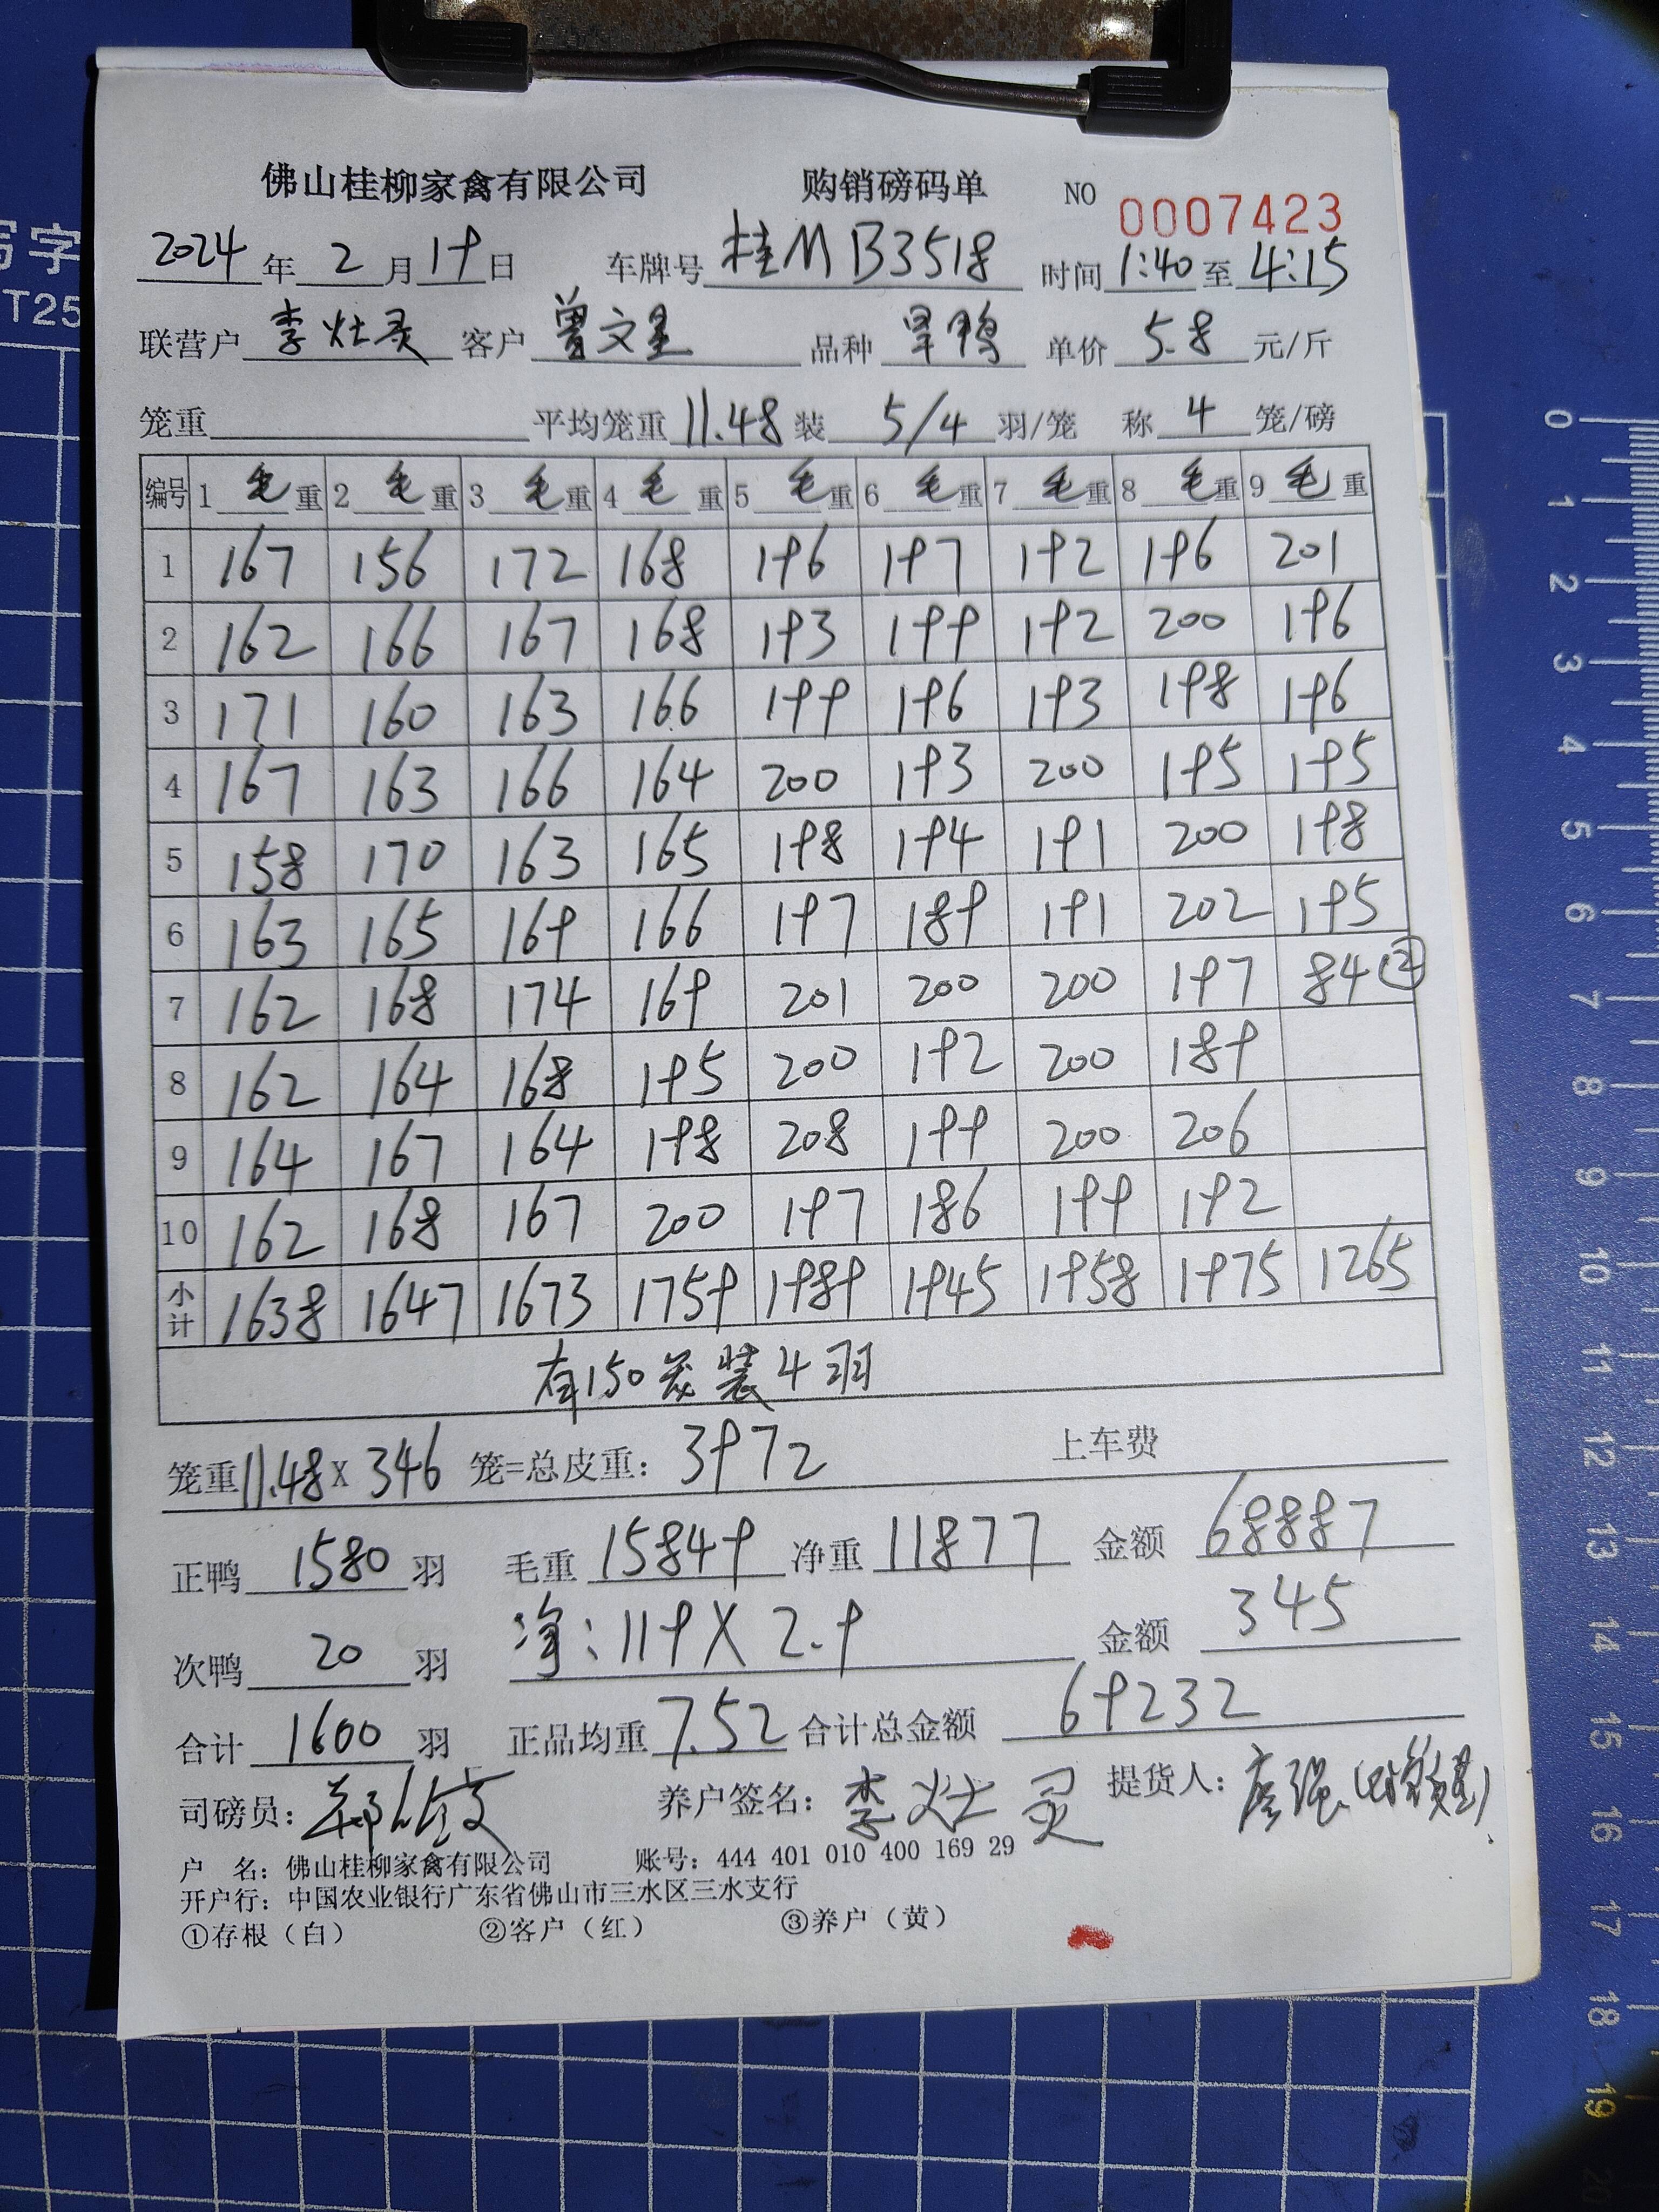 写字
T25
佛山桂柳家禽有限公司 购销磅码单 NO 0007423
2024 年 2 月 19 日 车牌号 桂M B3518 时间 1:40 至 4:15
联营户 李灶灵 客户 曾文星 品种 旱鸭 单价 5.8 元/斤
笼重 平均笼重 11.48 装 5/4 羽/笼 称 4 笼/磅
编号 1 毛 重 2 毛 重 3 毛 重 4 毛 重 5 毛 重 6 毛 重 7 毛 重 8 毛 重 9 毛 重
1 167 156 172 168 196 197 192 196 201
2 162 166 167 168 193 199 192 200 196
3 171 160 163 166 199 196 193 198 196
4 167 163 166 164 200 193 200 195 195
5 158 170 163 165 198 194 191 200 198
6 163 165 169 166 197 189 191 202 195
7 162 168 174 169 201 200 200 197 84 ②
8 162 164 168 195 200 192 200 189
9 164 167 164 198 208 199 200 206
10 162 168 167 200 197 186 199 192
小计 1638 1647 1673 1759 1989 1945 1958 1975 1265
有150笼装4羽
笼重 11.48 X 346 笼=总皮重: 3972 上车费
正鸭 1580 羽 毛重 15849 净重 11877 金额 68887
次鸭 20 羽 净:119X2.9 金额 345
合计 1600 羽 正品均重 7.52 合计总金额 69232
司磅员: 养户签名: 李灶灵 提货人:
户 名: 佛山桂柳家禽有限公司 账号: 444 401 010 400 169 29
开户行: 中国农业银行广东省佛山市三水区三水支行
①存根（白） ②客户（红） ③养户（黄）
0
1
2
3
4
5
6
7
8
9
10
11
12
13
14
15
16
17
18
19
20